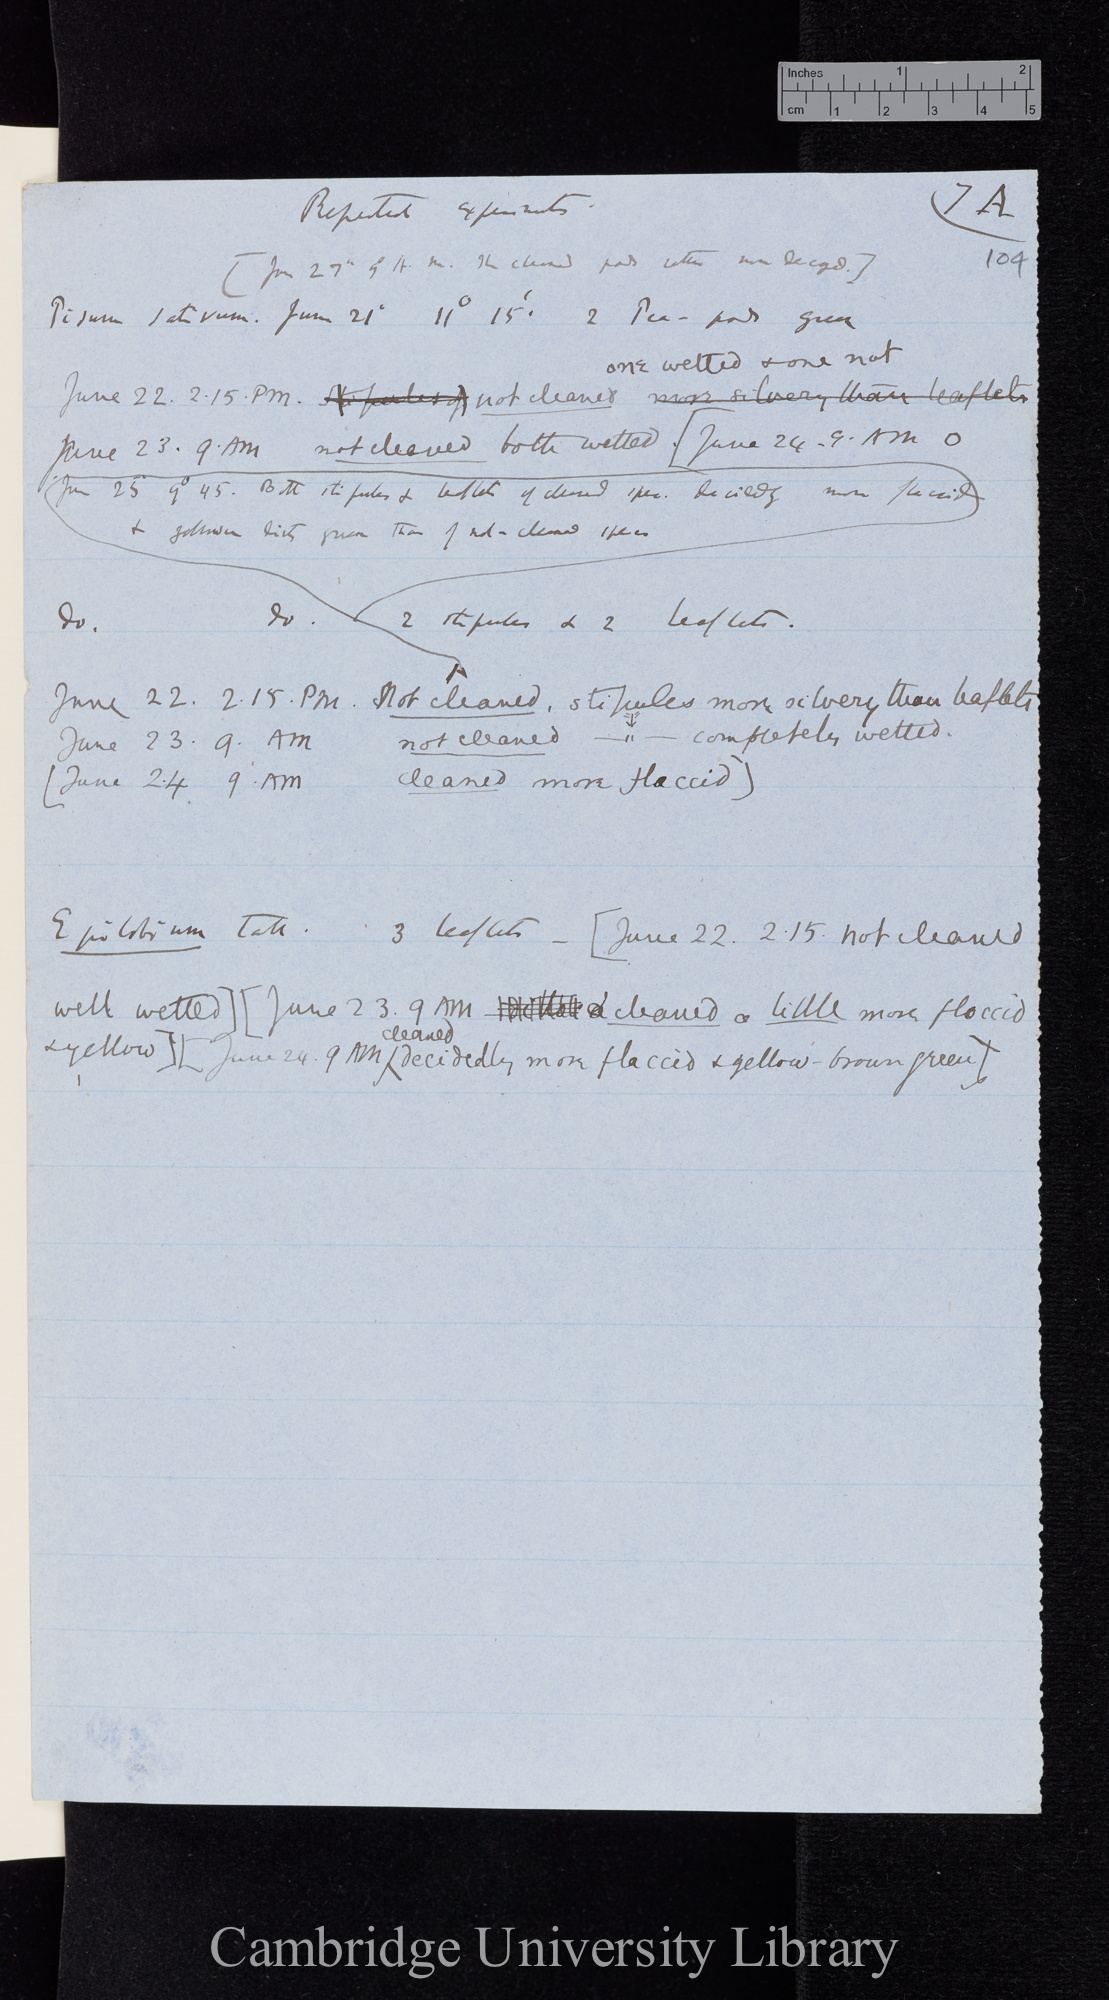 Inches 1 2
cm 1 2 3 4 5
7 A
Repeated experiments.
104
[June 27th 9° A. m. The cleaned pods rather more decayed.]
Pisum sativum. June 21st 11° 15'. 2 Pea-pods green
one wetted & one not
June 22. 2.15. PM. stipules of not cleaned more silvery than leaflets
June 23. 9. AM not cleaned both wetted. [June 24 - 9. AM 0
June 25 9° 45. Both stipules & leaflets of cleaned spec. decidedly more flaccid
& yellower dirty green than of not-cleaned specs
do. do. 2 stipules & 2 leaflets.
June 22. 2.15. PM. Not cleaned, stipules more silvery than leaflets
June 23. 9. AM not cleaned — " — completely wetted.
[June 24 9. AM cleaned more flaccid]
Epilobium tall. 3 leaflets — [June 22. 2.15. not cleaned
well wetted] [June 23. 9 AM cleaned a little more flaccid
& yellow] [June 24. 9 AM cleaned (decidedly more flaccid & yellow-brown green]
Cambridge University Library